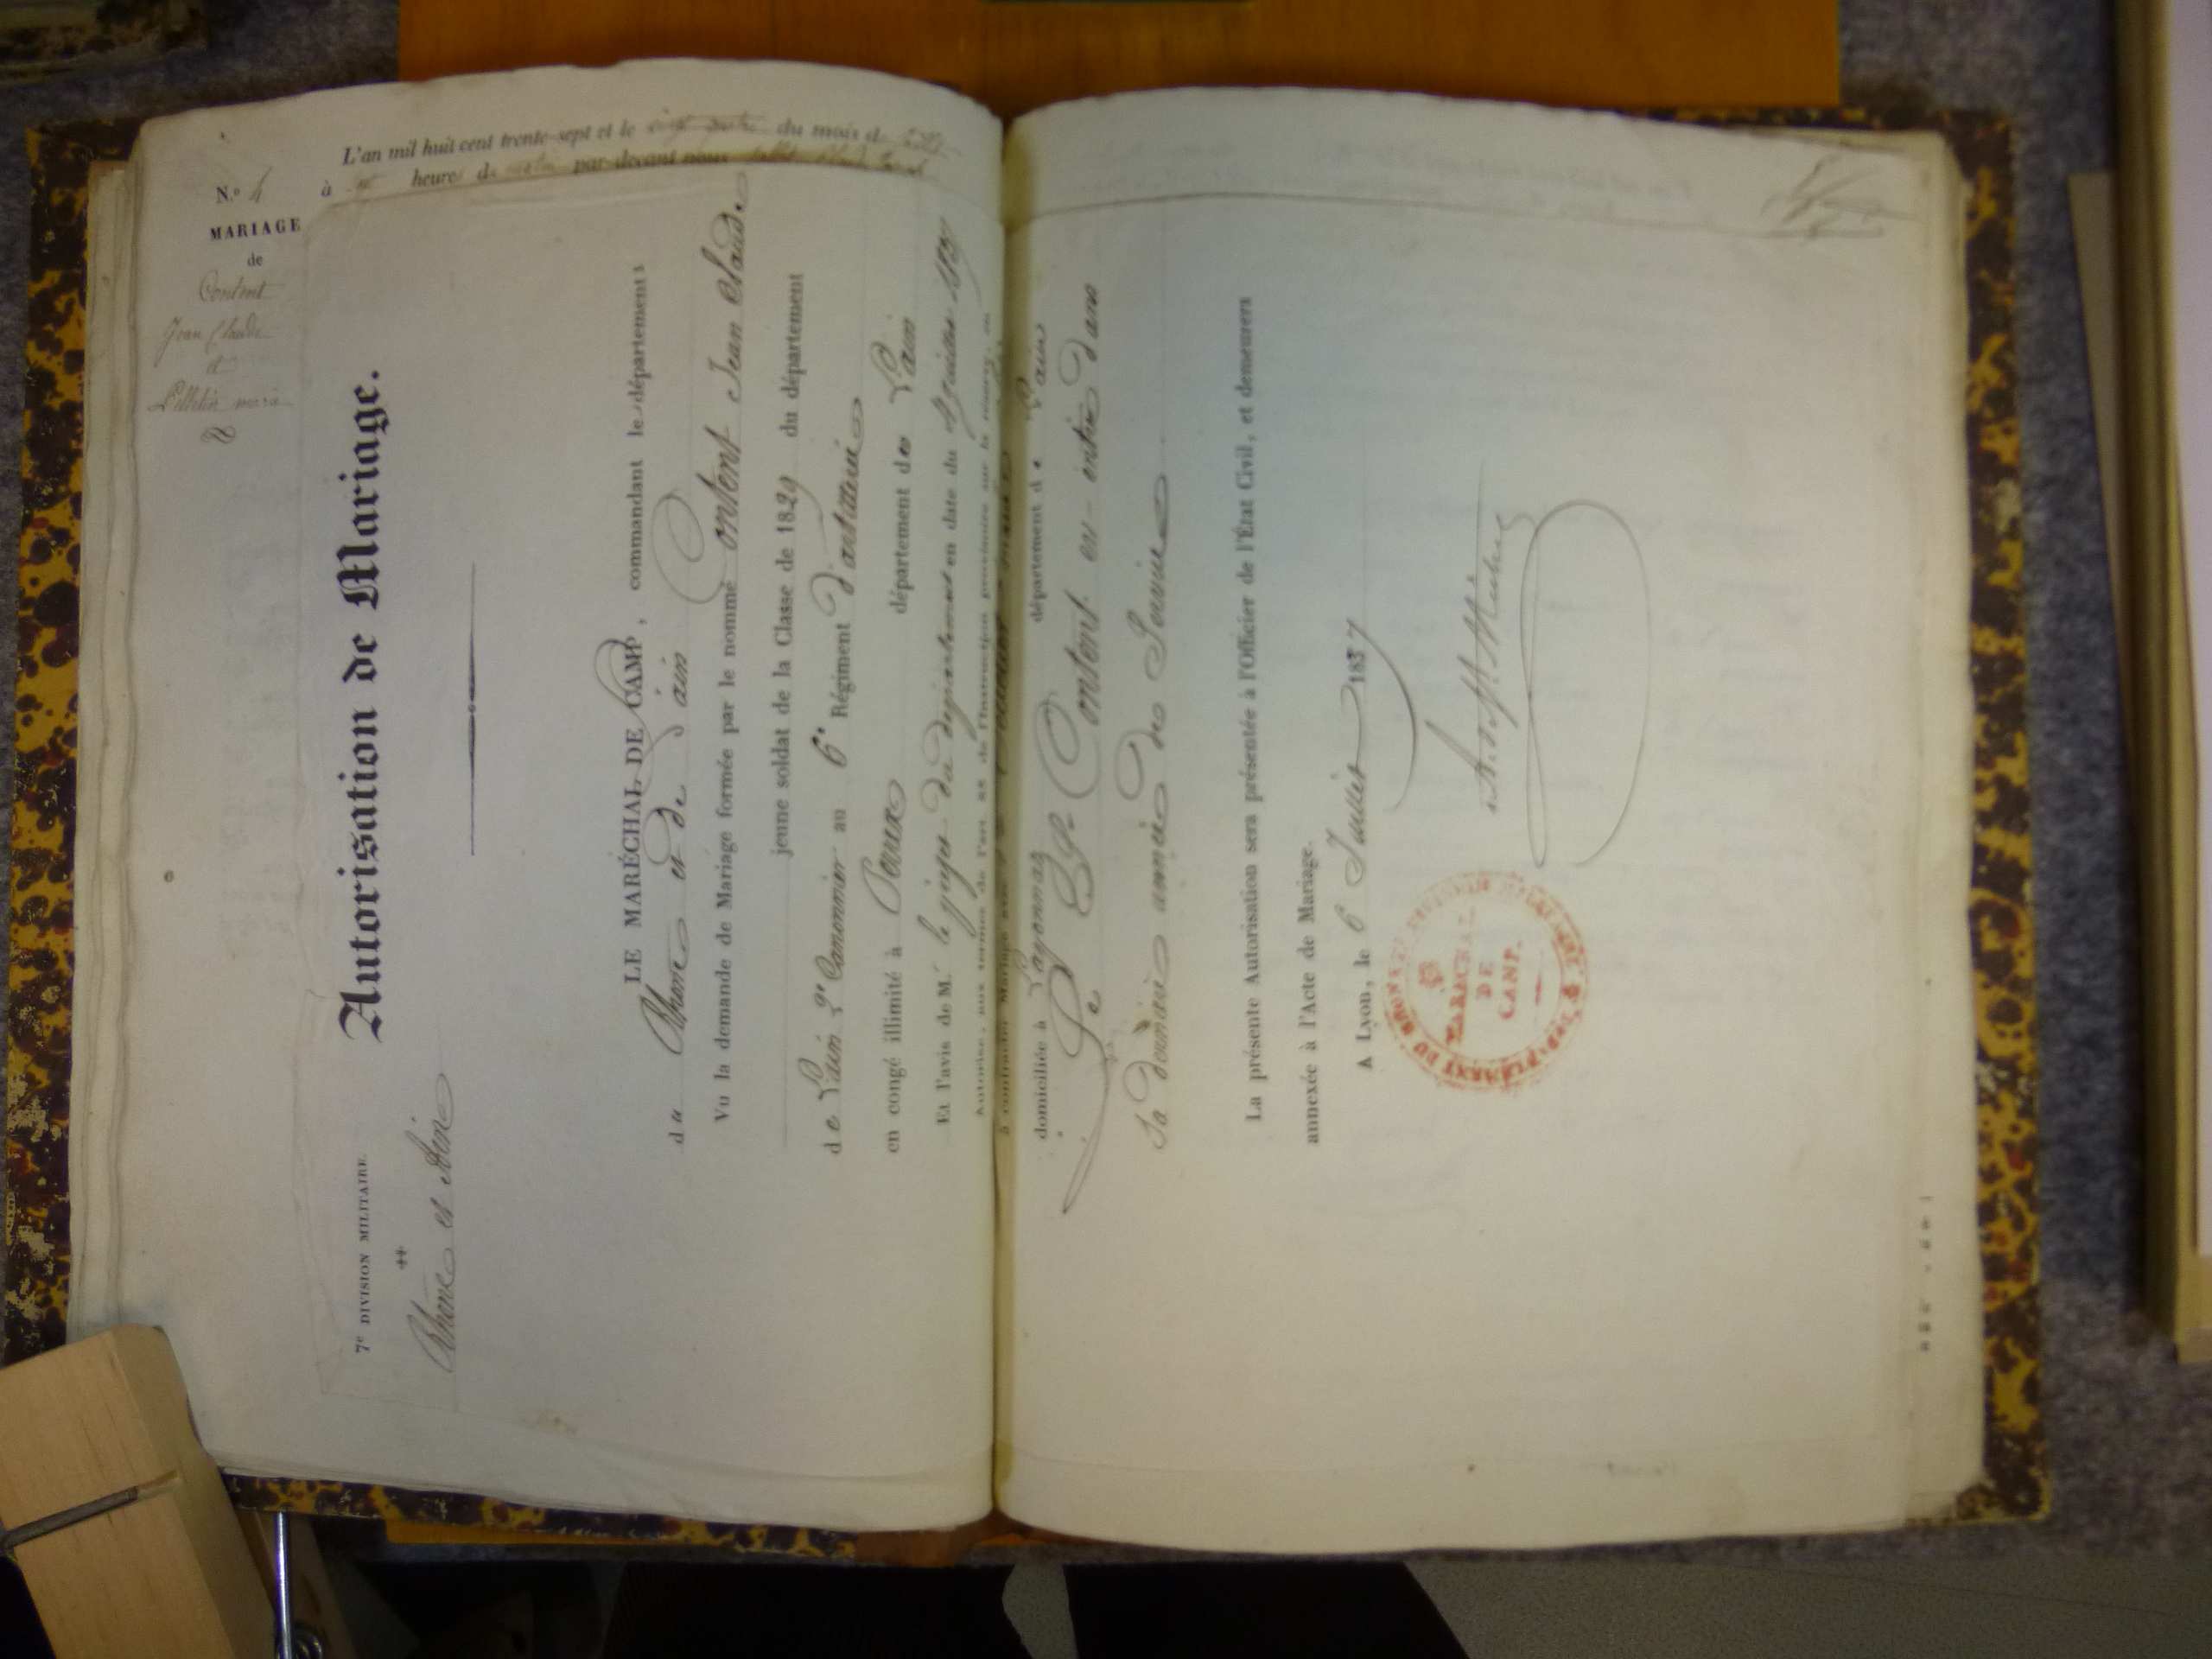 L'an mil huit cent trente-sept et le vingt quatre du mois de
à heures du matin par-devant nous
N.º 4
MARIAGE
de
Content
Jean Claude
et
Pelletin marie
7e DIVISION MILITAIRE
Rhône et Ain
Autorisation de Mariage.
LE MARÉCHAL DE CAMP, commandant les départements
du Rhône et de l'ain
Vu la demande de Mariage formée par le nommé Content Jean Claude
jeune soldat de la Classe de 1829 du département
de L'ain 2e Canonnier au 6e Régiment d'artillerie
en congé illimité à département de L'ain
Et l'avis de M. le du département en date du 1837
Autorise, aux termes de l'art. de l'Instruction
à contracter Mariage
domiciliée à département de L'ain
Le Content est entré dans
Sa dernière année de Service
La présente Autorisation sera présentée à l'Officier de l'État Civil, et demeurera
annexée à l'Acte de Mariage.
A Lyon, le 6 Juillet 1837
MARÉCHAL
DE
CAMP.